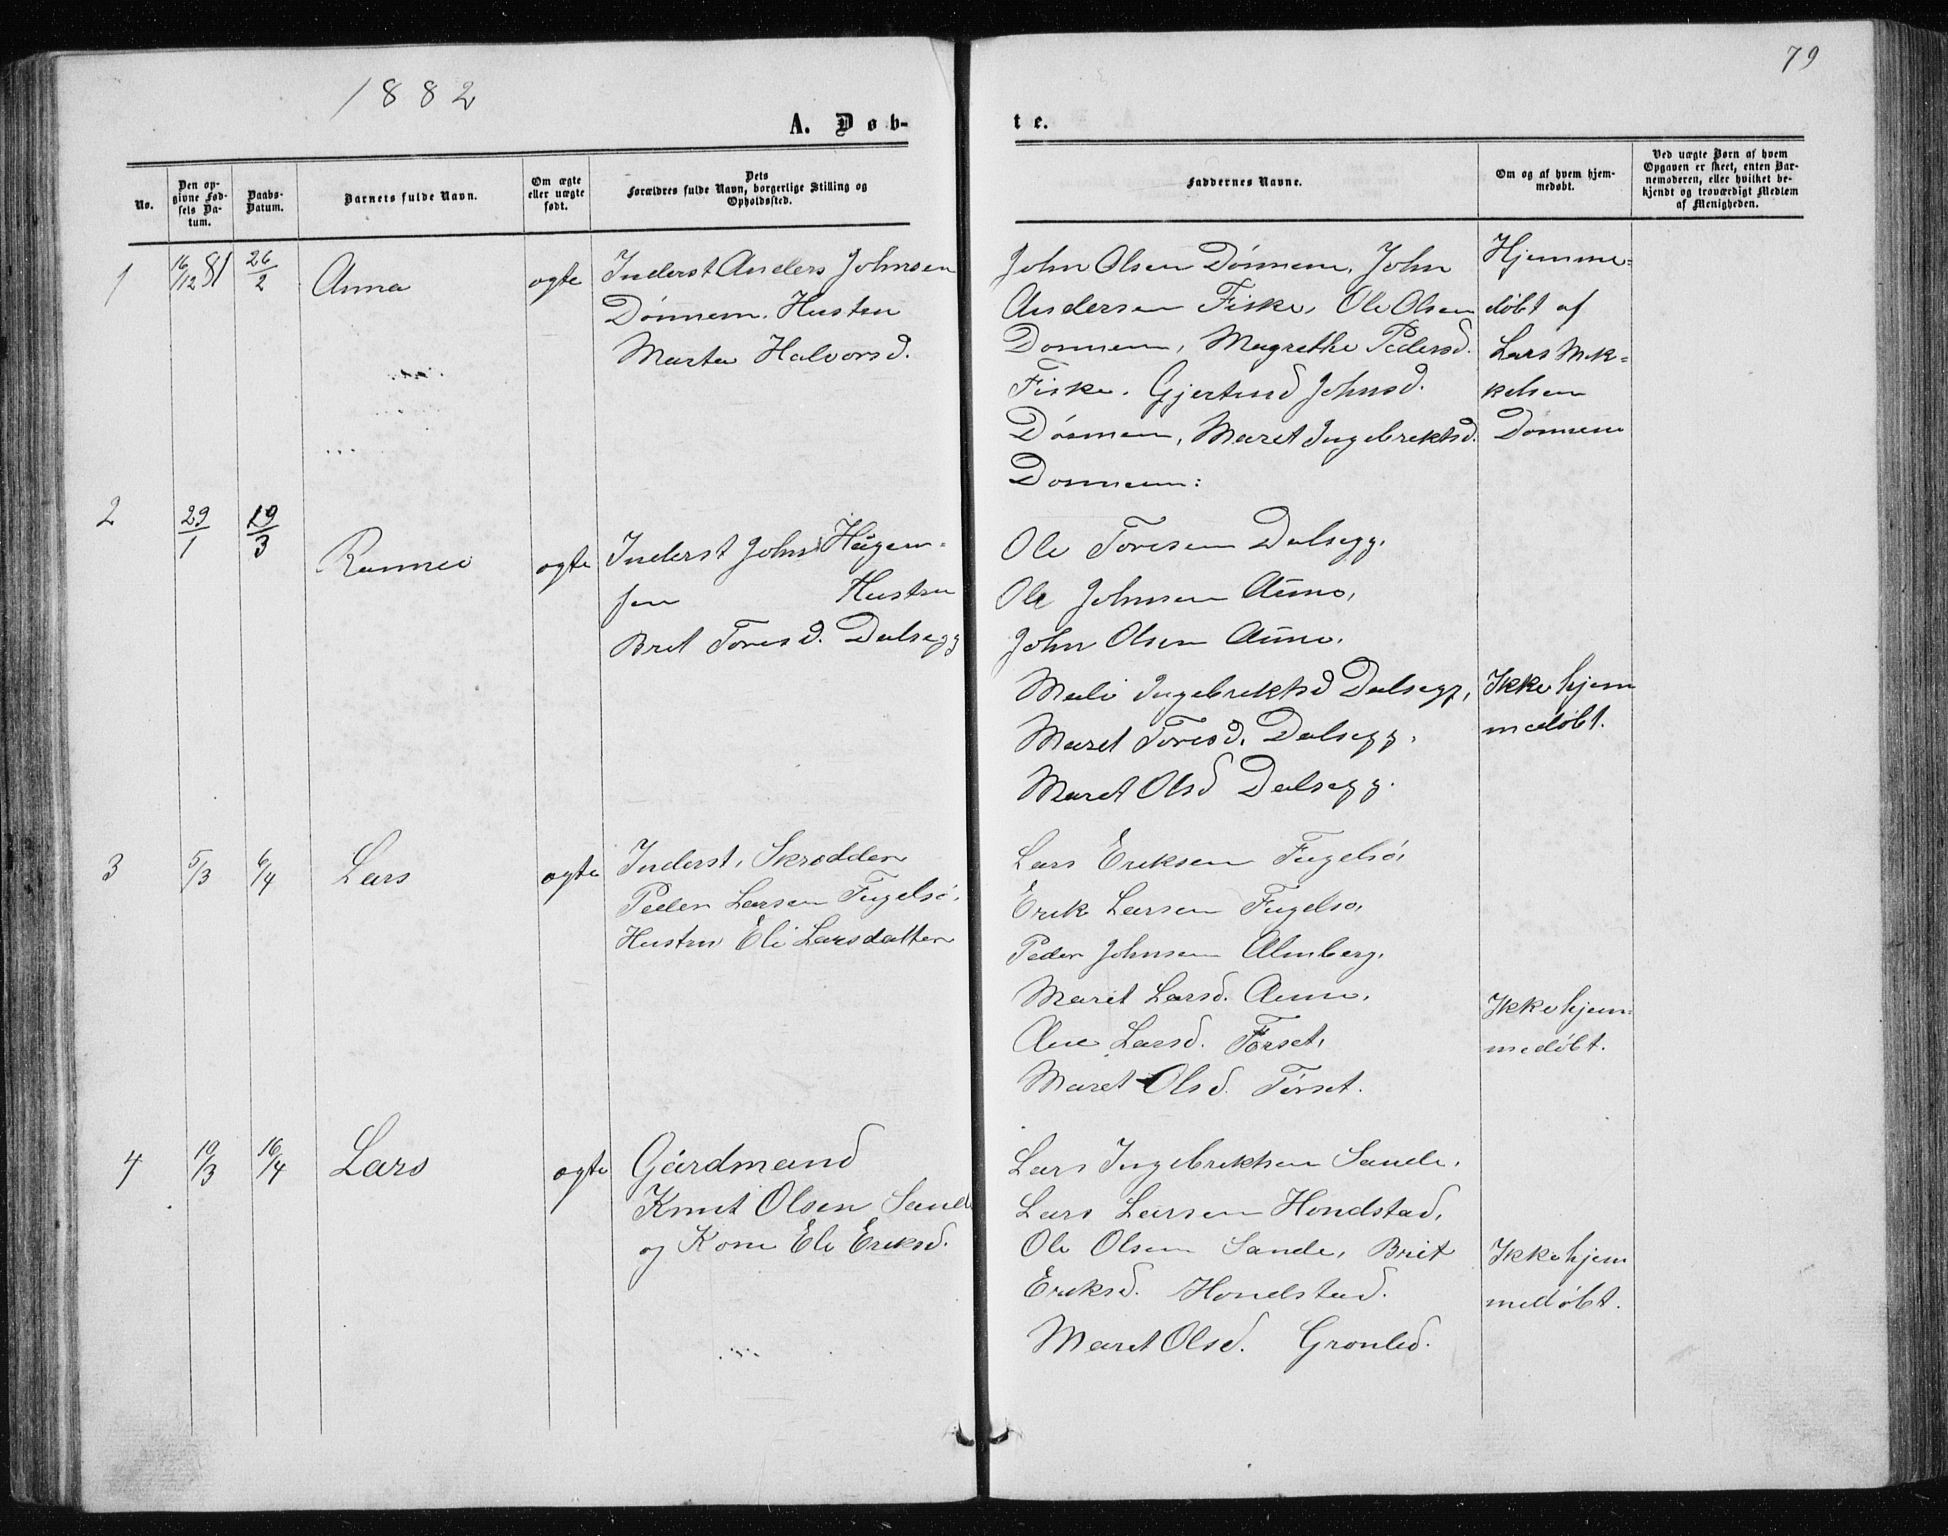 79
1882
A. Døb-
te.
No.
Den op-
givne Fød-
sels Da-
tum.
Daabs-
Datum.
Barnets fulde Navn.
Om ægte
eller uægte
født.
Dets
Forældres fulde Navn, borgerlige Stilling og
Opholdssted.
Faddernes Navne.
Om og af hvem hjem-
medøbt.
Ved uægte Børn af hvem
Opgaven er skeet, enten Bar-
nemoderen, eller hvilket be-
kjendt og troværdigt Medlem
af Menigheden.
1
16/12 81
26/2
Anna
ægte
Inderst Anders Johnsen
Dønnem. Hustru
Marta Halvorsd.
John Olsen Dønnem, John
Andersen Fiske, Ole Olsen
Donnem, Magrethe Pedersd.
Fiske. Gjertrud Johnsd.
Dønnem, Maret Ingebrektsd.
Donnem:
Hjemme=
døbt af
Lars Mik=
kelsen
Donnem
2
29/1
19/3
Rannei
ægte
Inderst John Hågen-
sen Hustru
Brit Toresd. Dalsegg
Ole Toresen Dalsegg.
Ole Johnsen Aŭno,
John Olsen Aŭno.
Mali Ingebrektsd Dalsegg,
Maret Toresd. Dalsegg.
Maret Olsd Dalsegg.
Ikke hjem
medøbt.
3
5/3
6/4
Lars
ægte
Inderst, Skrædder
Peder Larsen Fugelsø,
Hustru Eli Larsdatter
Lars Eriksen Fugelsø,
Erik Larsen Fugelso,
Peder Johnsen Almberg,
Marit Larsd. Aune,
Ane Larsd. Torset,
Maret Olsd. Tørset.
Ikke hjem=
medøbt.
4
10/3
16/4
Lars
ægte
Gårdmand
Knut Olsen Sande
og Kone Eli Eriksd.
Lars Ingebriktsen Sande,
Lars Larsen Hondstad,
Ole Olsen Sande, Brit
Eriksd. Hondstad.
Maret Olsd. Gronlid.
Ikke hjem
medøbt.